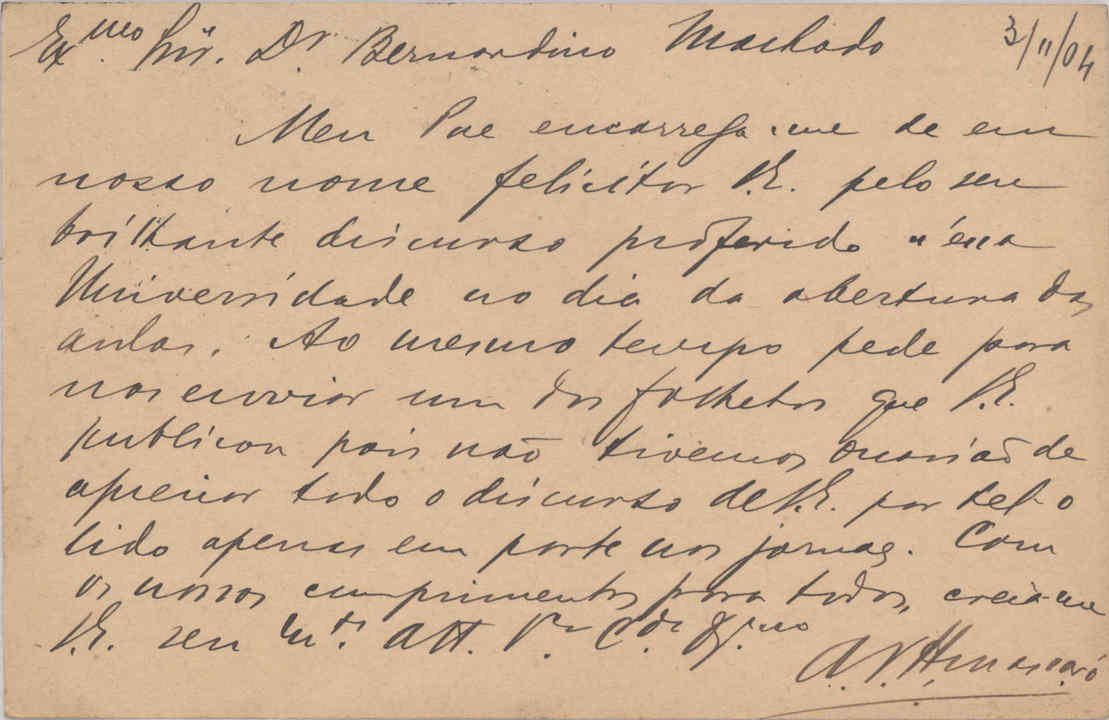 Ex.mo Snr. Dr. Bernardino Machado 3/11/04
Meu Pae encarrega-me de em
nosso nome felicitar V.E. pelo seu
brilhante discurso proferido n'essa
Universidade no dia da abertura das
aulas. Ao mesmo tempo pede para
nos enviar um dos folhetos que V.E.
publicou pois não tivemos occasião de
apreciar todo o discurso de V.E. por tel-o
lido apenas em parte nos jornaes. Com
os nossos cumprimentos para todos, creia-me
V.E. seu m.to att. V.or C.do Ob.mo